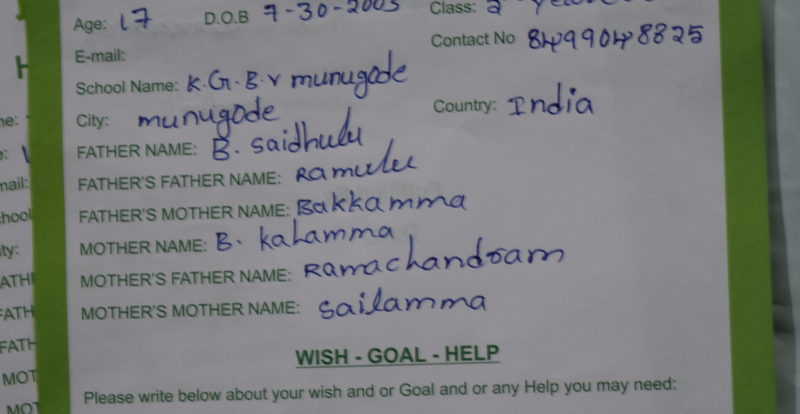 Age: 17 D.O.B 7-30-2003 Class: 2
E-mail: Contact No 8499048825
School Name: K.G.B.V munugode
City: munugode Country: India
FATHER NAME: B. Saidhulu
FATHER'S FATHER NAME: Ramulu
FATHER'S MOTHER NAME: Bakkamma
MOTHER NAME: B. kalamma
MOTHER'S FATHER NAME: Ramachandram
MOTHER'S MOTHER NAME: Sailamma
WISH - GOAL - HELP
Please write below about your wish and or Goal and or any Help you may need: